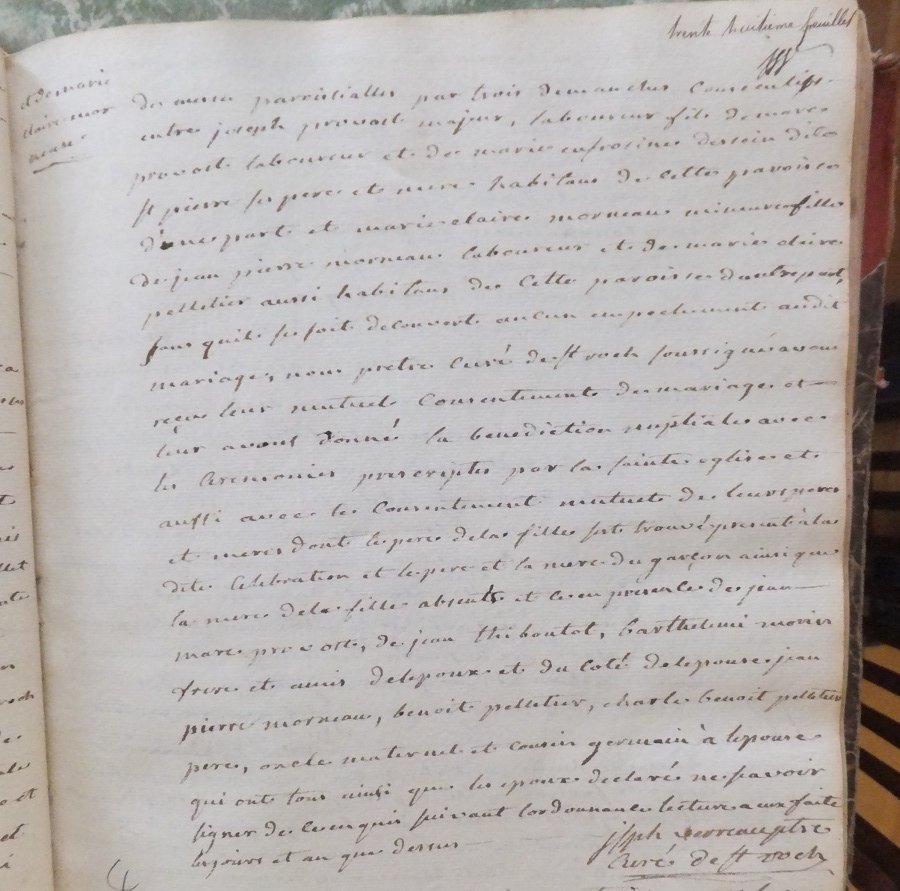 trente huitieme feuillet
et de marie
claire mor
neau
des messes paroissialles par trois dimanches consecutifs
entre joseph provost majeur, laboureur fils de marc
provost laboureur et de marie eufrosine dessein dit
st pierre ses pere et mere habitans de cette paroisse
d'une part et marie claire morneau mineure fille
de jean pierre morneau laboureur et de marie claire
pelletier aussi habitans de cette paroisse d'autre part,
sans quil se soit decouvert aucun empechement audit
mariage, nous pretre curé de st roch soussigné avons
reçu leur mutuel consentement de mariage et
leur avons donné la benediction nuptiale avec
les ceremonies prescriptes par la sainte eglise et
aussi avec le consentement mutuel de leurs peres
et meres dont le pere de la fille s'est trouvé present à la
dite celebration et le pere et la mere du garçon ainsi que
la mere de la fille absents et ce en presence de jean
marc provost, de jean thiboutot, barthelemi morin
frere et amis de lepoux et du coté de lepouse jean
pierre morneau, benoit pelletier, charle benoit pelletier
pere, oncle maternel et cousin germain à lepouse
qui ont tous ainsi que les epoux declaré ne savoir
signer de ce enquis suivant lordonnance lecture a eux faite
les jours et an que dessus
jsph verreau ptre
curé de st roch